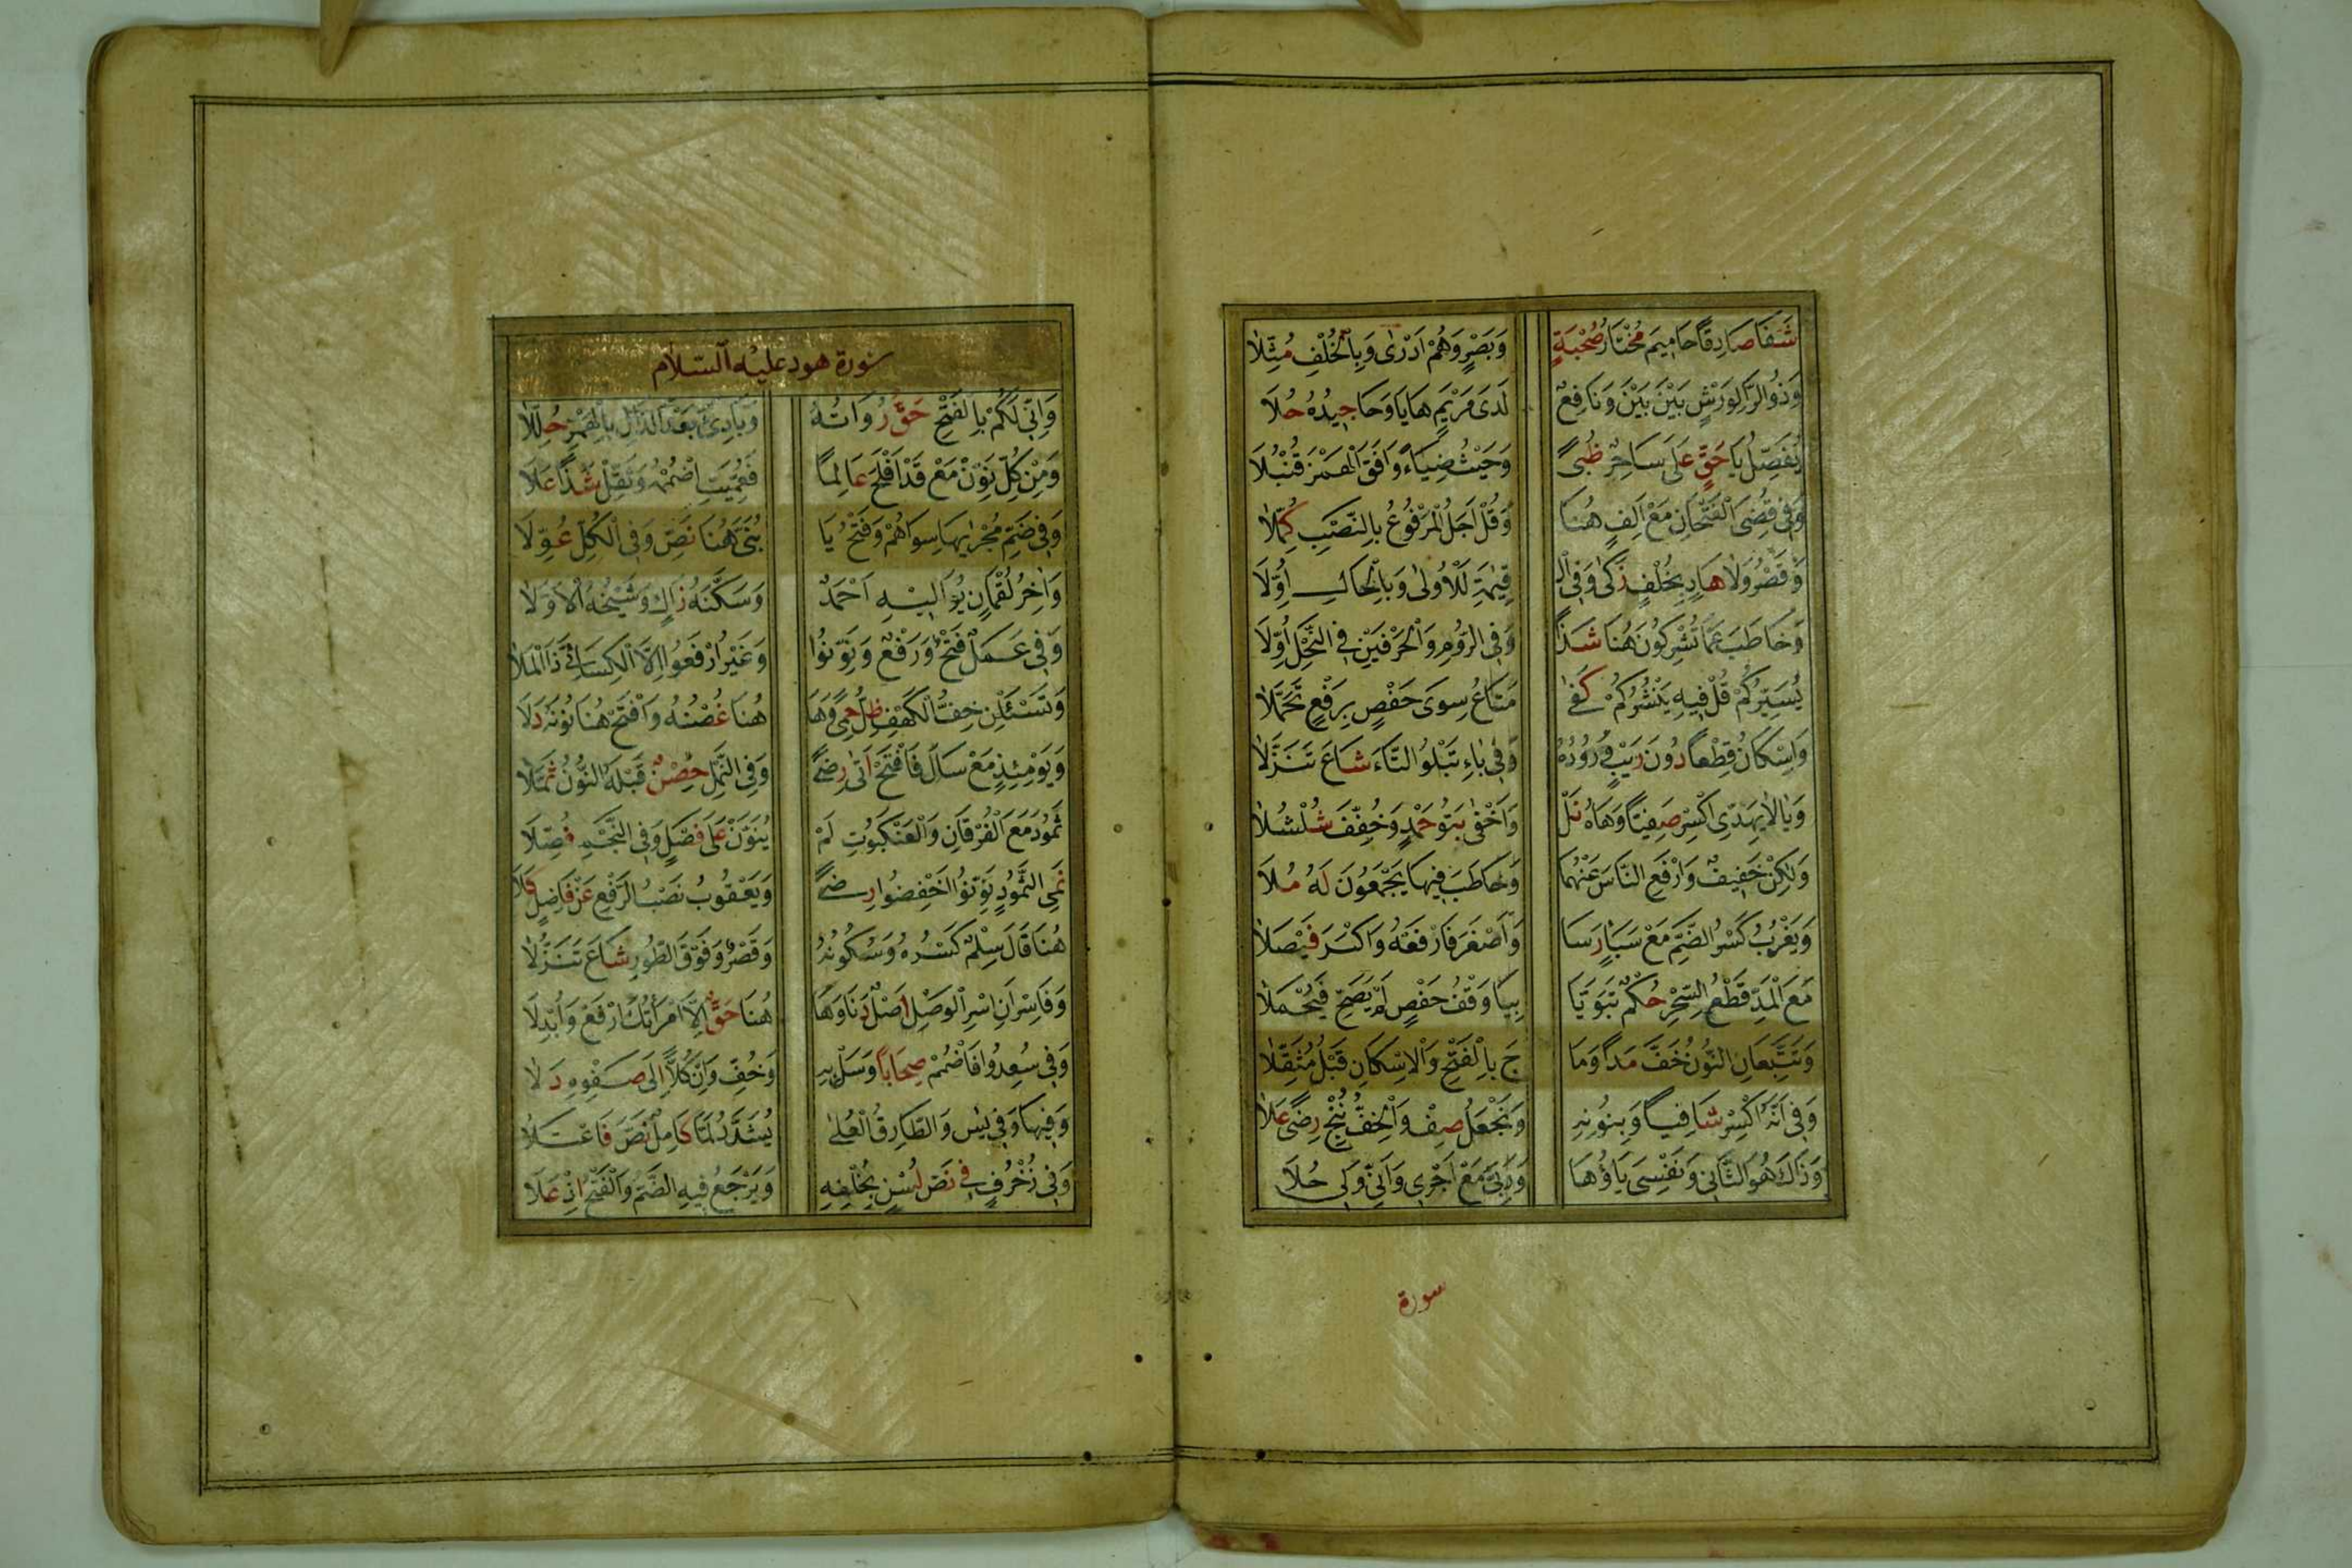 شَفَا صَادِقًا حَامِيمَ مُخْتَارُ صُحْبَةٍ وَبَصْرٍ وَهُمْ اَدْرٰى وَبِالْخُلْفِ مُثِّلَا
وَذُو الرَّا لِوَرْشٍ بَيْنَ بَيْنَ وَنَافِعٌ لَدَى مَرْيَمٍ هَايَا وَحَا جِيدُهُ حُلَا
يُفَصِّلُ يَا حَقٍّ عَلَى سَاحِرٌ ظُبًى وَحَيْثُ ضِيَاءً وَافَقَ الْهَمْزَ قُنْبُلَا
وَفِى قُضِىَ الْفَتْحَانِ مَعْ اَلِفٍ هُنَا وَقُلْ اَجَلُ الْمَرْفُوعُ بِالنَّصْبِ كُمِّلَا
وَقَصْرُ وَلَا هَادٍ بِخُلْفٍ زَكٰى وَفِى الْ قِيٰمَةِ لَا الْاُولٰى وَبِالْحَالِ اُوِّلَا
وَخَاطَبَ عَمَّا تُشْرِكُونَ هُنَا شَذًا وَفِى الرُّومِ وَالْحَرْفَيْنِ فِى النَّحْلِ اَوَّلَا
يُسَيِّرُكُمْ قُلْ فِيهِ يَنْشُرُكُمْ كَفٰى مَتَاعُ سِوَى حَفْصٍ بِرَفْعٍ تَحَمَّلَا
وَاِسْكَانُ قِطْعًا دُونَ رَيْبٍ وُرُودُهُ وَفِى بَاءِ تَبْلُو التَّاءُ شَاعَ تَنَزُّلَا
وَيَا لَا يَهِدِّى اكْسِرْ صَفِيًّا وَهَاهُ نَلْ وَاَخْفٰى بَنُو حَمْدٍ وَخُفِّفَ شُلْشُلَا
وَلٰكِنْ خَفِيفٌ وَارْفَعِ النَّاسَ عَنْهُمَا وَخَاطَبَ فِيهَا يَجْمَعُونَ لَهُ مُلَا
وَيَعْزُبُ كَسْرُ الضَّمِّ مَعْ سَبَإٍ رَسَا وَاَصْغَرَ فَارْفَعْهُ وَاَكْبَرَ فَيْصَلَا
مَعَ الْمَدِّ قَطْعُ السِّحْرِ حُكْمٌ تَبَوَّيَا بِيَا وَقْفُ حَفْصٍ لَمْ يَصِحَّ فَيُحْمَلَا
وَتَتَّبِعَانِ النُّونُ خَفَّ مَدًا وَمَا جَ بِالْفَتْحِ وَالْاِسْكَانِ قَبْلُ مُثَقَّلَا
وَفِى اَنَّهُ اكْسِرْ شَافِيًا وَبِنُونِهِ وَنَجْعَلُ صِفْ وَالْخِفُّ نُنْجِ رِضًى عَلَا
وَذَاكَ هُوَ الثَّانِى وَنَفْسِى يَاؤُهَا وَرَبِّىَ مَعْ اَجْرِى وَاَنِّى وَلِى حُلَا
سورة
سُورة هود عليه السلام
وَاِنِّى لَكُمْ بِالْفَتْحِ حَقُّ رُوَاتِهُ وَبَادِئَ بَعْدَ الدَّالِ بِالْهَمْزِ حُلِّلَا
وَمِنْ كُلِّ نَوِّنْ مَعْ قَدْ اَفْلَحَ عَالِمًا فَعُمِّيَتِ اضْمُمْهُ وَثَقِّلْ شَذًا عَلَا
وَفِى ضَمِّ مُجْرٰيهَا سِوَاهُمْ وَفَتْحُ يَا بُنَىَّ هُنَا نَصٌّ وَفِى الْكُلِّ عُوِّلَا
وَاٰخِرَ لُقْمَانٍ يُوَالِيهِ اَحْمَدٌ وَسَكَّنَهُ زَاكٍ وَشَيْخُهُ الْاَوَّلَا
وَفِى عَمَلٌ فَتْحٌ وَرَفْعٌ وَنَوِّنُوا وَغَيْرُ ارْفَعُوا اِلَّا الْكِسَائِىَّ ذَا الْمَلَا
وَتَسْئَلْنِ خِفُّ الْكَهْفِ ظِلُّ حِمًى وَهَا هُنَا غُصْنُهُ وَافْتَحْ هُنَا نُونَهُ دَلَا
وَيَوْمِئِذٍ مَعْ سَالَ فَافْتَحْ اَتٰى رِضًى وَفِى النَّمْلِ حِصْنٌ قَبْلَهُ النُّونُ ثُمِّلَا
ثَمُودَ مَعَ الْفُرْقَانِ وَالْعَنْكَبُوتِ لَمْ يُنَوَّنْ عَلَى فَصْلٍ وَفِى النَّجْمِ فُصِّلَا
نَمٰى لِثَمُودٍ نَوِّنُوا اخْفِضُوا رِضًى وَيَعْقُوبُ نَصْبُ الرَّفْعِ عَنْ فَاضِلٍ كَلَا
هُنَا قَالَ سِلْمٌ كَسْرُهُ وَسُكُونُهُ وَقَصْرٌ وَفَوْقَ الطُّورِ شَاعَ تَنَزُّلَا
وَفَاسْرِ اَنِ اسْرِ الْوَصْلُ اَصْلٌ دَنَا وَهَا هُنَا حَقٌّ اِلَّا امْرَأَتَكَ ارْفَعْ وَاَبْدِلَا
وَفِى سُعِدُوا فَاضْمُمْ صِحَابًا وَسَلْ بِهِ وَخِفُّ وَاِنْ كُلًّا اِلَى صَفْوِهِ دَلَا
وَفِيهَا وَفِى يٰسٓ وَالطَّارِقِ الْعُلٰى يُشَدِّدُ لَمَّا كَامِلٌ نَصَّ فَاعْتَلَا
وَفِى زُخْرُفٍ فِى نَصِّ لُسْنٍ بِخُلْفِهِ وَيَرْجَعُ فِيهِ الضَّمُّ وَالْفَتْحُ اِذْ عَلَا